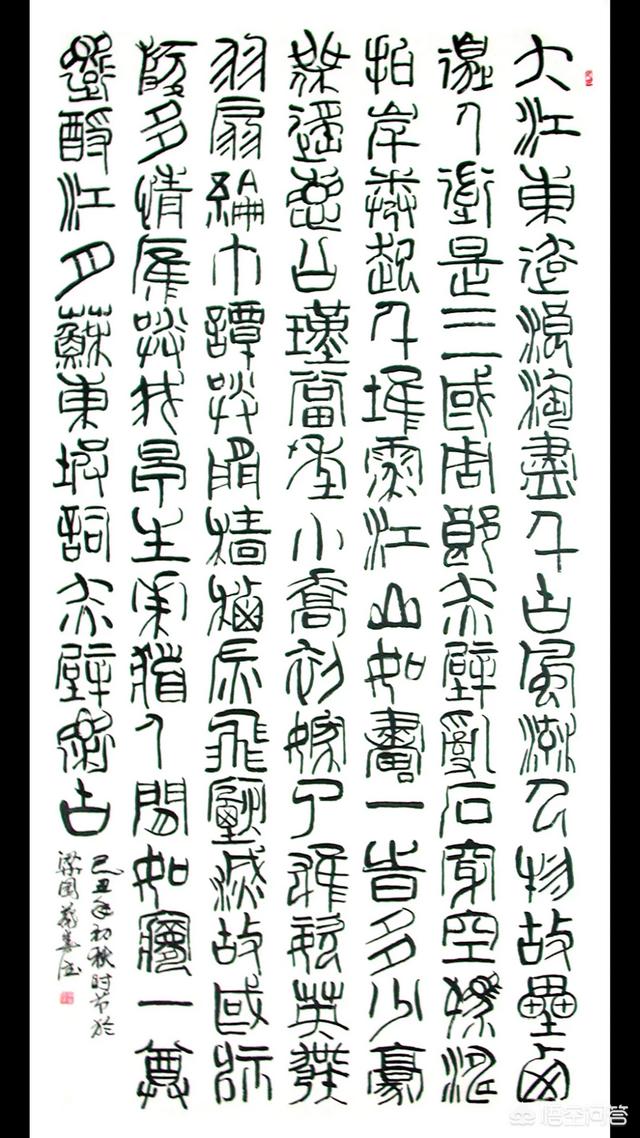 大江東去浪淘盡千古風流人物故壘西
邊人道是三國周郎赤壁亂石穿空驚濤
拍岸捲起千堆雪江山如畫一時多少豪
傑遙想公瑾當年小喬初嫁了雄姿英發
羽扇綸巾譚笑間檣櫓灰飛煙滅故國神
遊多情應笑我早生華髮人間如夢一尊
還酹江月蘇東坡詞赤壁懷古
己丑年初秋时节於
梁国
悟空问答